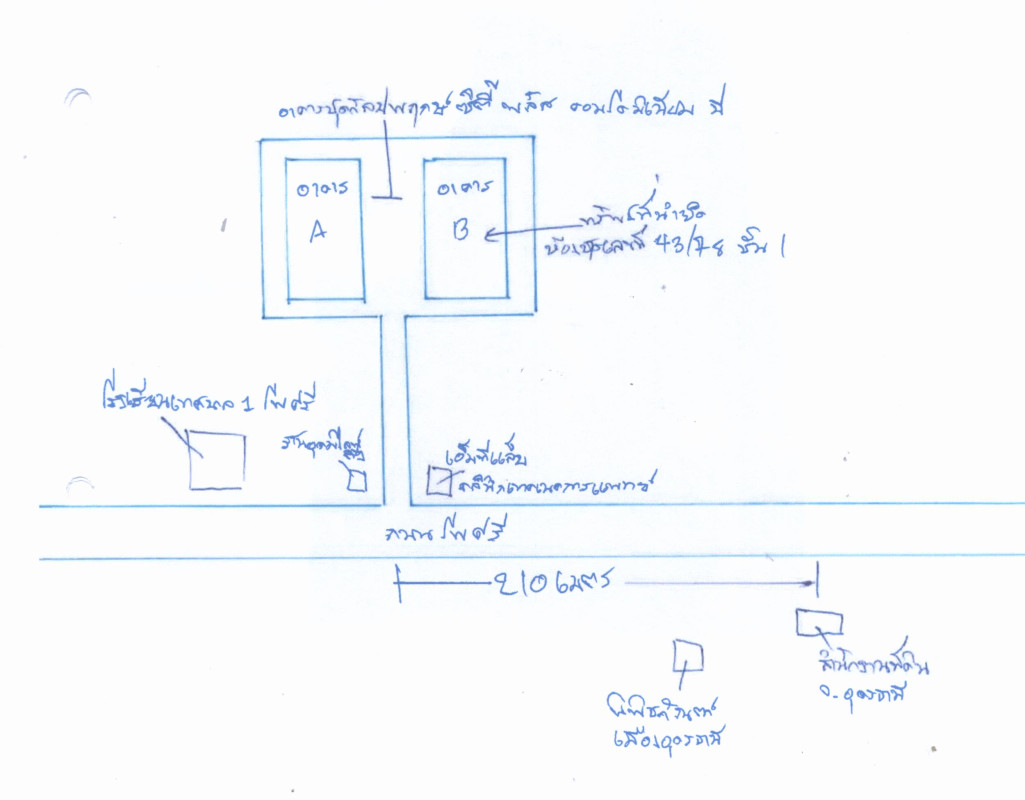 อาคารชุดกัลปพฤกษ์ ซิตี้ พลัส คอนโดมิเนียม ที่
อาคาร
A
อาคาร
B
ทรัพย์ที่นำยึด
ห้องชุดเลขที่ 43/78 ชั้น 1
โรงเรียนเทศบาล 1 โพศรี
เอ็มทีแล็บ
คลีนิกเทคนิคการแพทย์
ถนนโพศรี
210 เมตร
สำนักงานที่ดิน
จ.อุดรธานี
พิพิธภัณฑ์
เมืองอุดรธานี